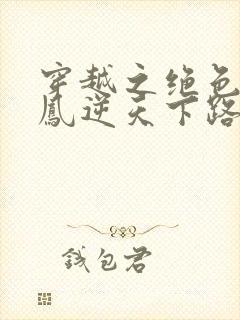 穿越之绝色
凤逆天下路
钱包君